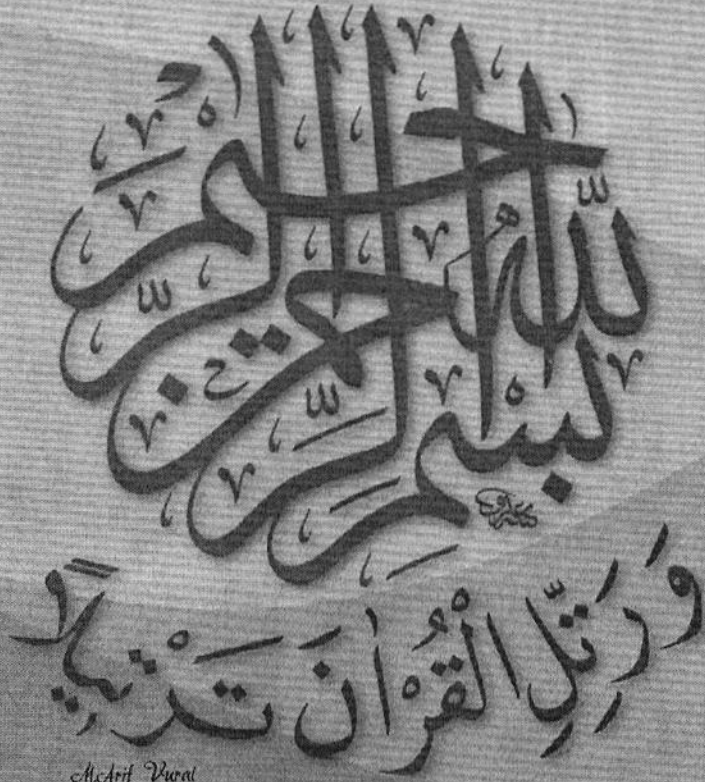 بسم الله الرحمن الرحيم
وَرَتِّلِ الْقُرْاٰنَ تَرْتيلاً
M.Arif Vural